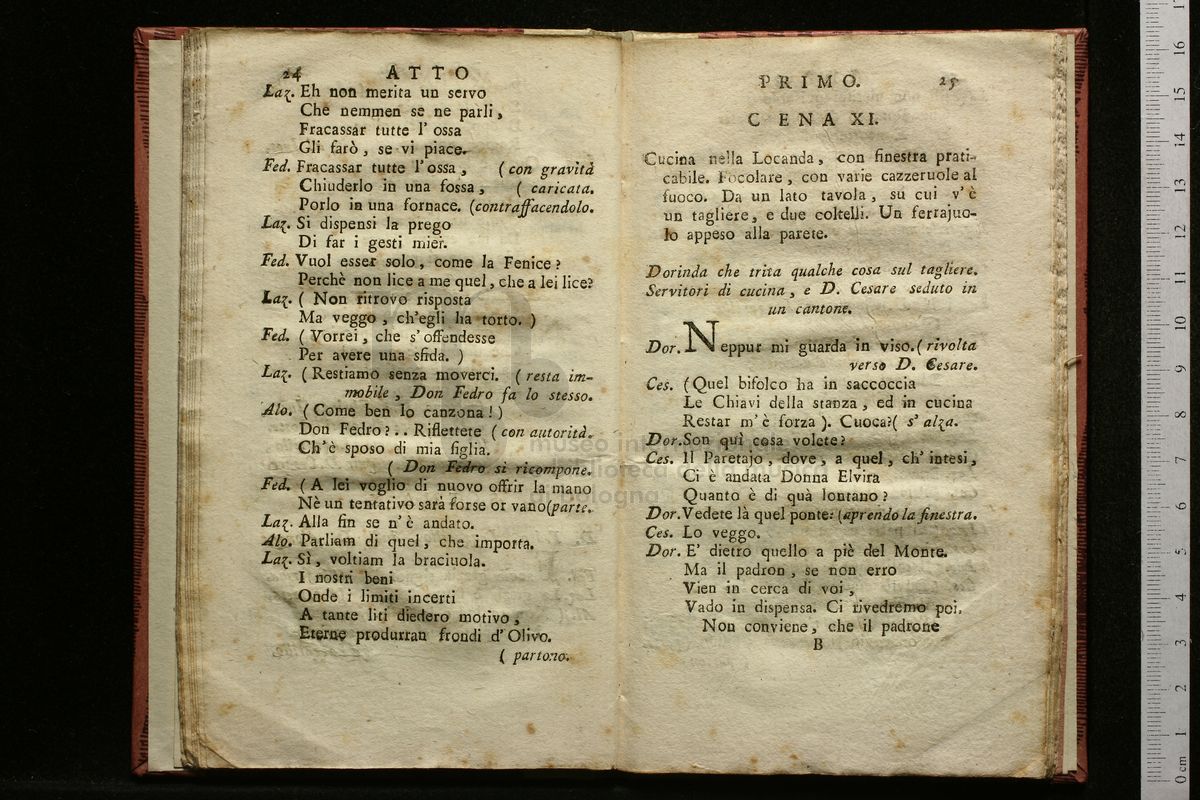 24 ATTO
Laz. Eh non merita un servo
Che nemmen se ne parli,
Fracassar tutte l' ossa
Gli farò, se vi piace.
Fed. Fracassar tutte l' ossa, (con gravità
Chiuderlo in una fossa, ( caricata.
Porlo in una fornace. (contraffacendolo.
Laz. Si dispensi la prego
Di far i gesti miei.
Fed. Vuol esser solo, come la Fenice?
Perchè non lice a me quel, che a lei lice?
Laz. ( Non ritrovo risposta
Ma veggo, ch'egli ha torto. )
Fed. ( Vorrei, che s' offendesse
Per avere una sfida. )
Laz. ( Restiamo senza moverci. ( resta im-
mobile, Don Fedro fa lo stesso.
Alo. ( Come ben lo canzona! )
Don Fedro?.. Riflettete ( con autorità.
Ch'è sposo di mia figlia.
( Don Fedro si ricompone.
Fed. ( A lei voglio di nuovo offrir la mano
Nè un tentativo sarà forse or vano(parte.
Laz. Alla fin se n'è andato.
Alo. Parliam di quel, che importa.
Laz. Sì, voltiam la braciuola.
I nostri beni
Onde i limiti incerti
A tante liti diedero motivo,
Eterne produrran frondi d' Olivo.
( partono.
PRIMO. 25
CENA XI.
Cucina nella Locanda, con finestra prati-
cabile. Focolare, con varie cazzeruole al
fuoco. Da un lato tavola, su cui v'è
un tagliere, e due coltelli. Un ferrajuo-
lo appeso alla parete.
Dorinda che trita qualche cosa sul tagliere.
Servitori di cucina, e D. Cesare seduto in
un cantone.
Dor. Neppur mi guarda in viso. ( rivolta
verso D. Cesare.
Ces. (Quel bifolco ha in saccoccia
Le Chiavi della stanza, ed in cucina
Restar m'è forza ). Cuoca?( s' alza.
Dor. Son quì cosa volete?
Ces. Il Paretajo, dove, a quel, ch' intesi,
Ci è andata Donna Elvira
Quanto è di quà lontano?
Dor. Vedete là quel ponte: (aprendo la finestra.
Ces. Lo veggo.
Dor. E' dietro quello a piè del Monte.
Ma il padron, se non erro
Vien in cerca di voi,
Vado in dispensa. Ci rivedremo poi.
Non conviene, che il padrone
B